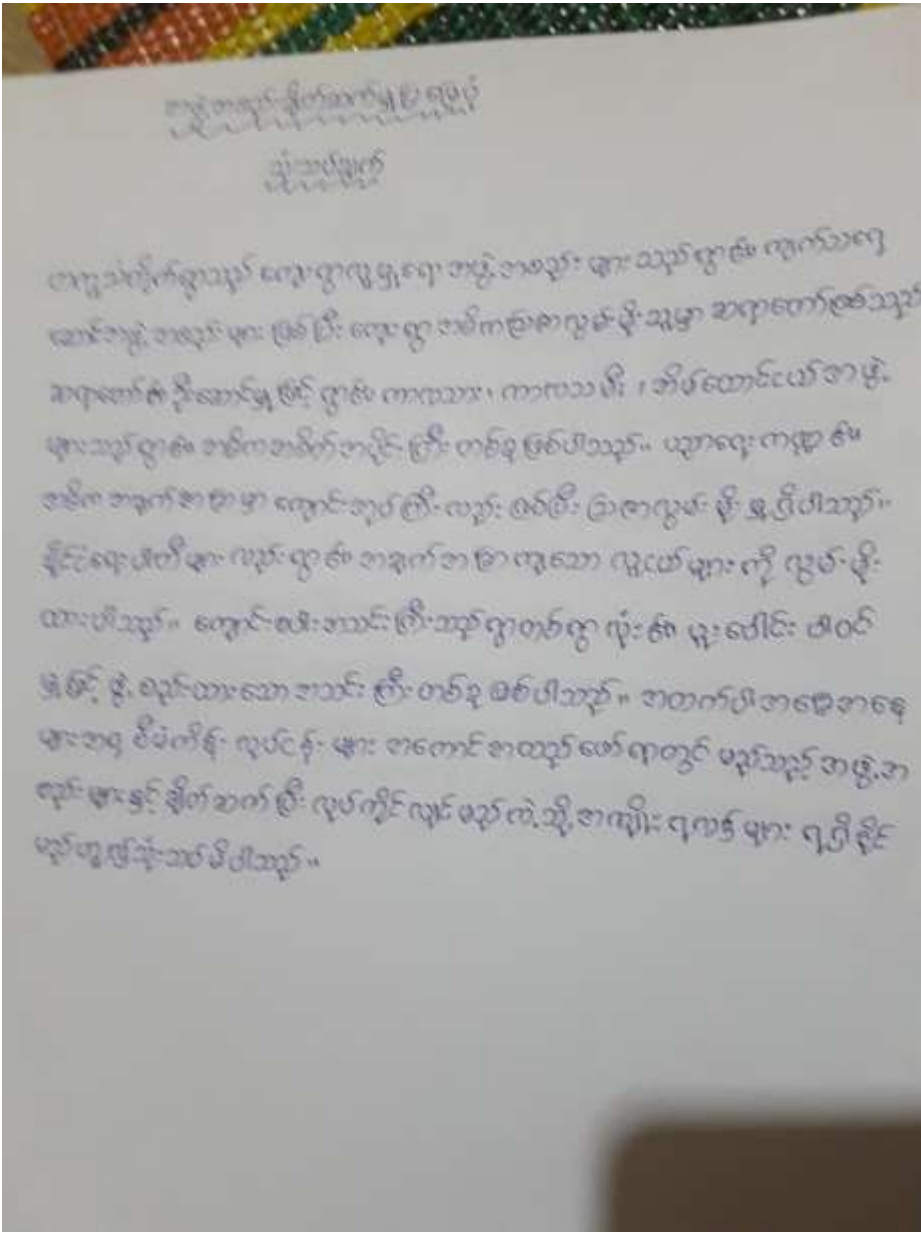 အဖွဲ့အစည်းချိတ်ဆက်မှုပြမြေပုံ
သုံးသပ်ချက်
ကျေးရွာလူမှုရေးအဖွဲ့အစည်းများသည်ရွာ၏ကျက်သရေ
ဆောင်အဖွဲ့အစည်းများဖြစ်ပြီးကျေးရွာအဓိကသြဇာလွှမ်းမိုးသူမှာဆရာတော်ဖြစ်သည်
ဆရာတော်၏ဦးဆောင်မှုဖြင့်ရွာ၏ကာလသား၊ကာလသမီး၊အိမ်ထောင်ငယ်အဖွဲ့
များသည်ရွာ၏အဓိကအစိတ်အပိုင်းကြီးတစ်ခုဖြစ်ပါသည်။ပညာရေးကဏ္ဍ၏
အဓိကအချက်အချာမှာကျောင်းအုပ်ကြီးလည်းဖြစ်ပြီးသြဇာလွှမ်းမိုးမှုရှိပါသည်။
နိုင်ငံရေးပါတီများလည်းရွာ၏အချက်အချာကျသောလူငယ်များကိုလွှမ်းမိုး
ထားပါသည်။ရွာတစ်ရွာလုံး၏ပူးပေါင်းပါဝင်
မှုဖြင့်ဖွဲ့စည်းထားသောအသင်းကြီးတစ်ခုဖြစ်ပါသည်။အထက်ပါအခြေအနေ
များအရစီမံကိန်းလုပ်ငန်းများအကောင်အထည်ဖော်ရာတွင်မည်သည့်အဖွဲ့အ
စည်းများနှင့်ချိတ်ဆက်ပြီးလုပ်ကိုင်လျှင်မည်ကဲ့သို့အကျိုးရလဒ်များရရှိနိုင်
မည်ဟူ၍သုံးသပ်မိပါသည်။